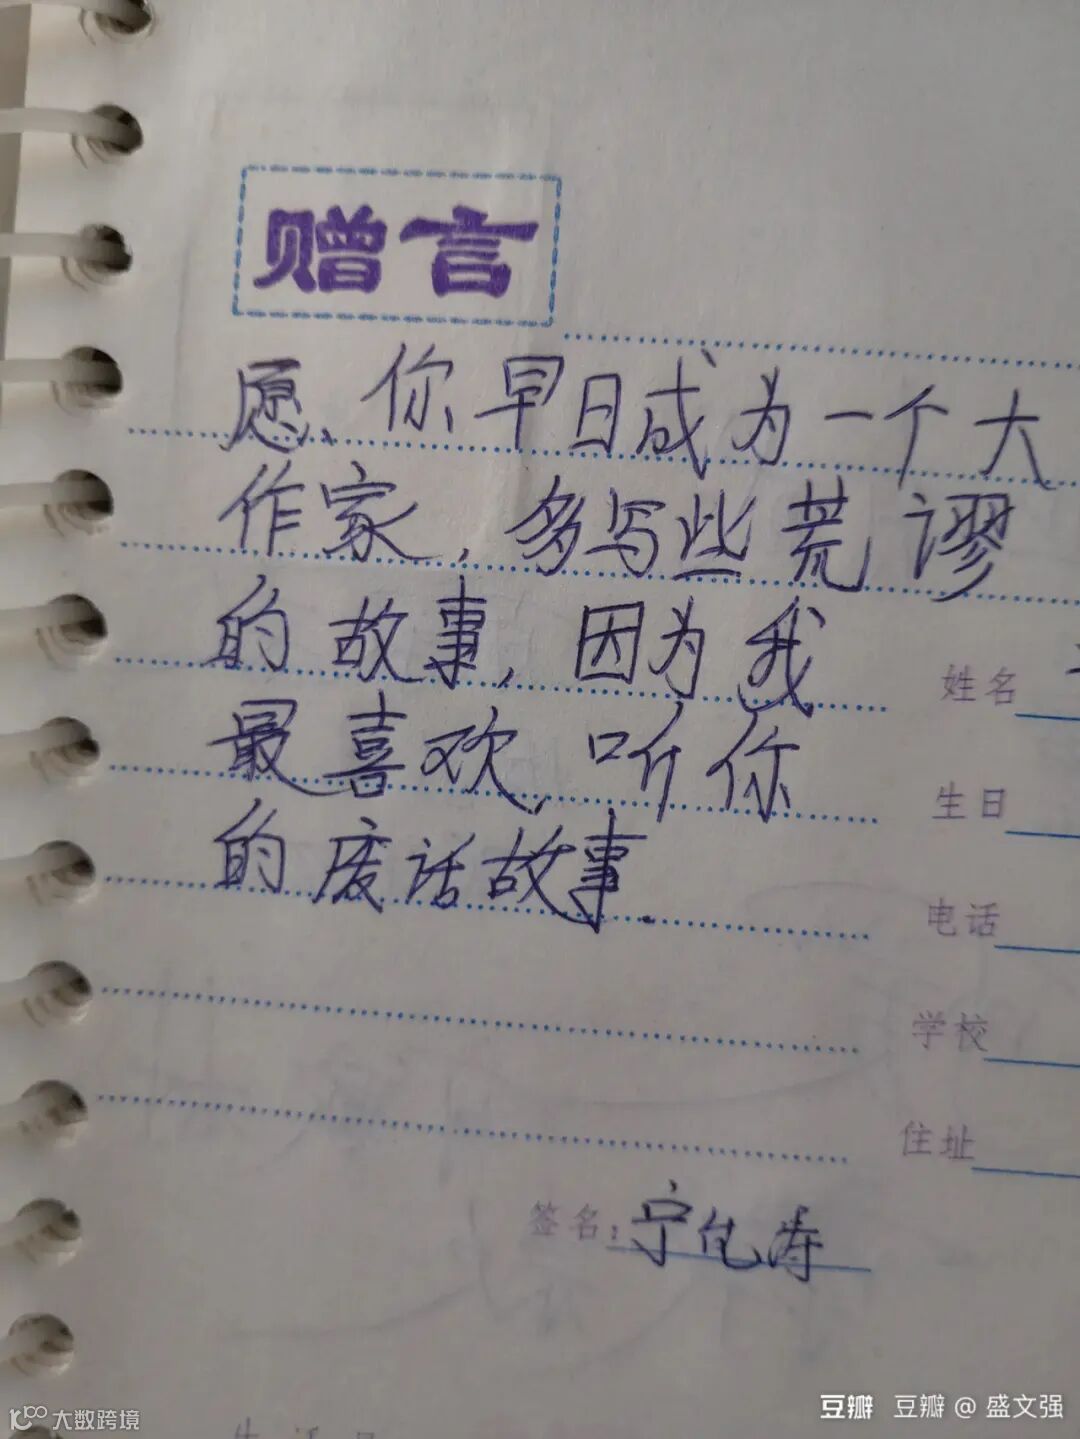 赠言
愿、你早日成为一个大
作家，多写些荒谬
的故事，因为我
最喜欢听你
的废话故事.
姓名
生日
电话
学校
住址
签名:
大数跨境
豆瓣 豆瓣@盛文强